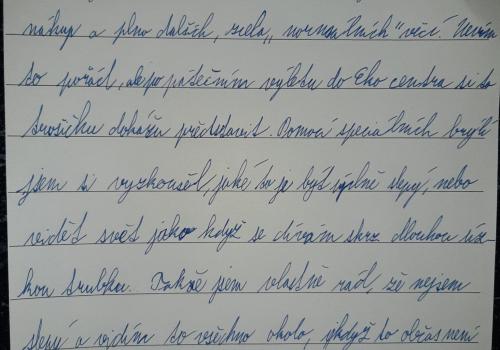 nákup a plno dalších, zcela „normálních" věcí. Nevím
to pořád, ale po pátečním výletu do Eko centra si to
trošičku dokážu představit. Pomocí speciálních brýlí
jsem si vyzkoušel, jaké to je být úplně slepý, nebo
vidět svět jako když se dívám skrz dlouhou úz-
kou trubku. Takže jsem vlastně rád, že nejsem
slepý a vidím to všechno okolo, i když to občas není